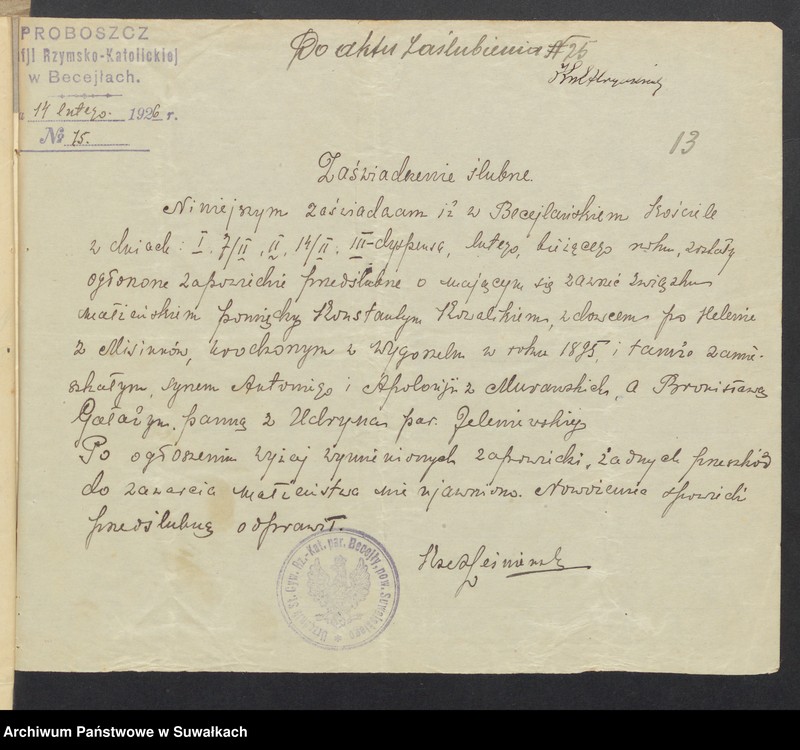 PROBOSZCZ
fji Rzymsko-Katolickiej
w Becejłach.
14 lutego 1926 r.
№ 15.
Do aktu zaślubienia № 26
13
Zaświadczenie ślubne.
Niniejszym zaświadczam iż w Becejlańskiem kościele
w dniach: I. 7/II, II. 14/II. III-dyspensa, lutego, bieżącego roku, zostały
ogłoszone zapowiedzie przedślubne o mającym się zawrzeć związku
małżeńskiem pomiędzy Konstantym Kowalskiem, wdowcem po Helenie
z Misiunów, urodzonym w Wygorzelu w roku 1895, i tamże zamie-
szkałym, synem Antoniego i Apolonji z Murawskich, a Bronisławą
panną z Udryna par. Jeleniewskiej
Po ogłoszeniu wyżej wymienionych zapowiedzi, żadnych przeszkód
do zawarcia małżeństwa nie ujawniono. Nowożeniec spowiedź
przedślubną odprawił.
Urzędnik St. Cyw. Rz.-Kat. par. Becejły, pow. Suwalskiego
Archiwum Państwowe w Suwałkach